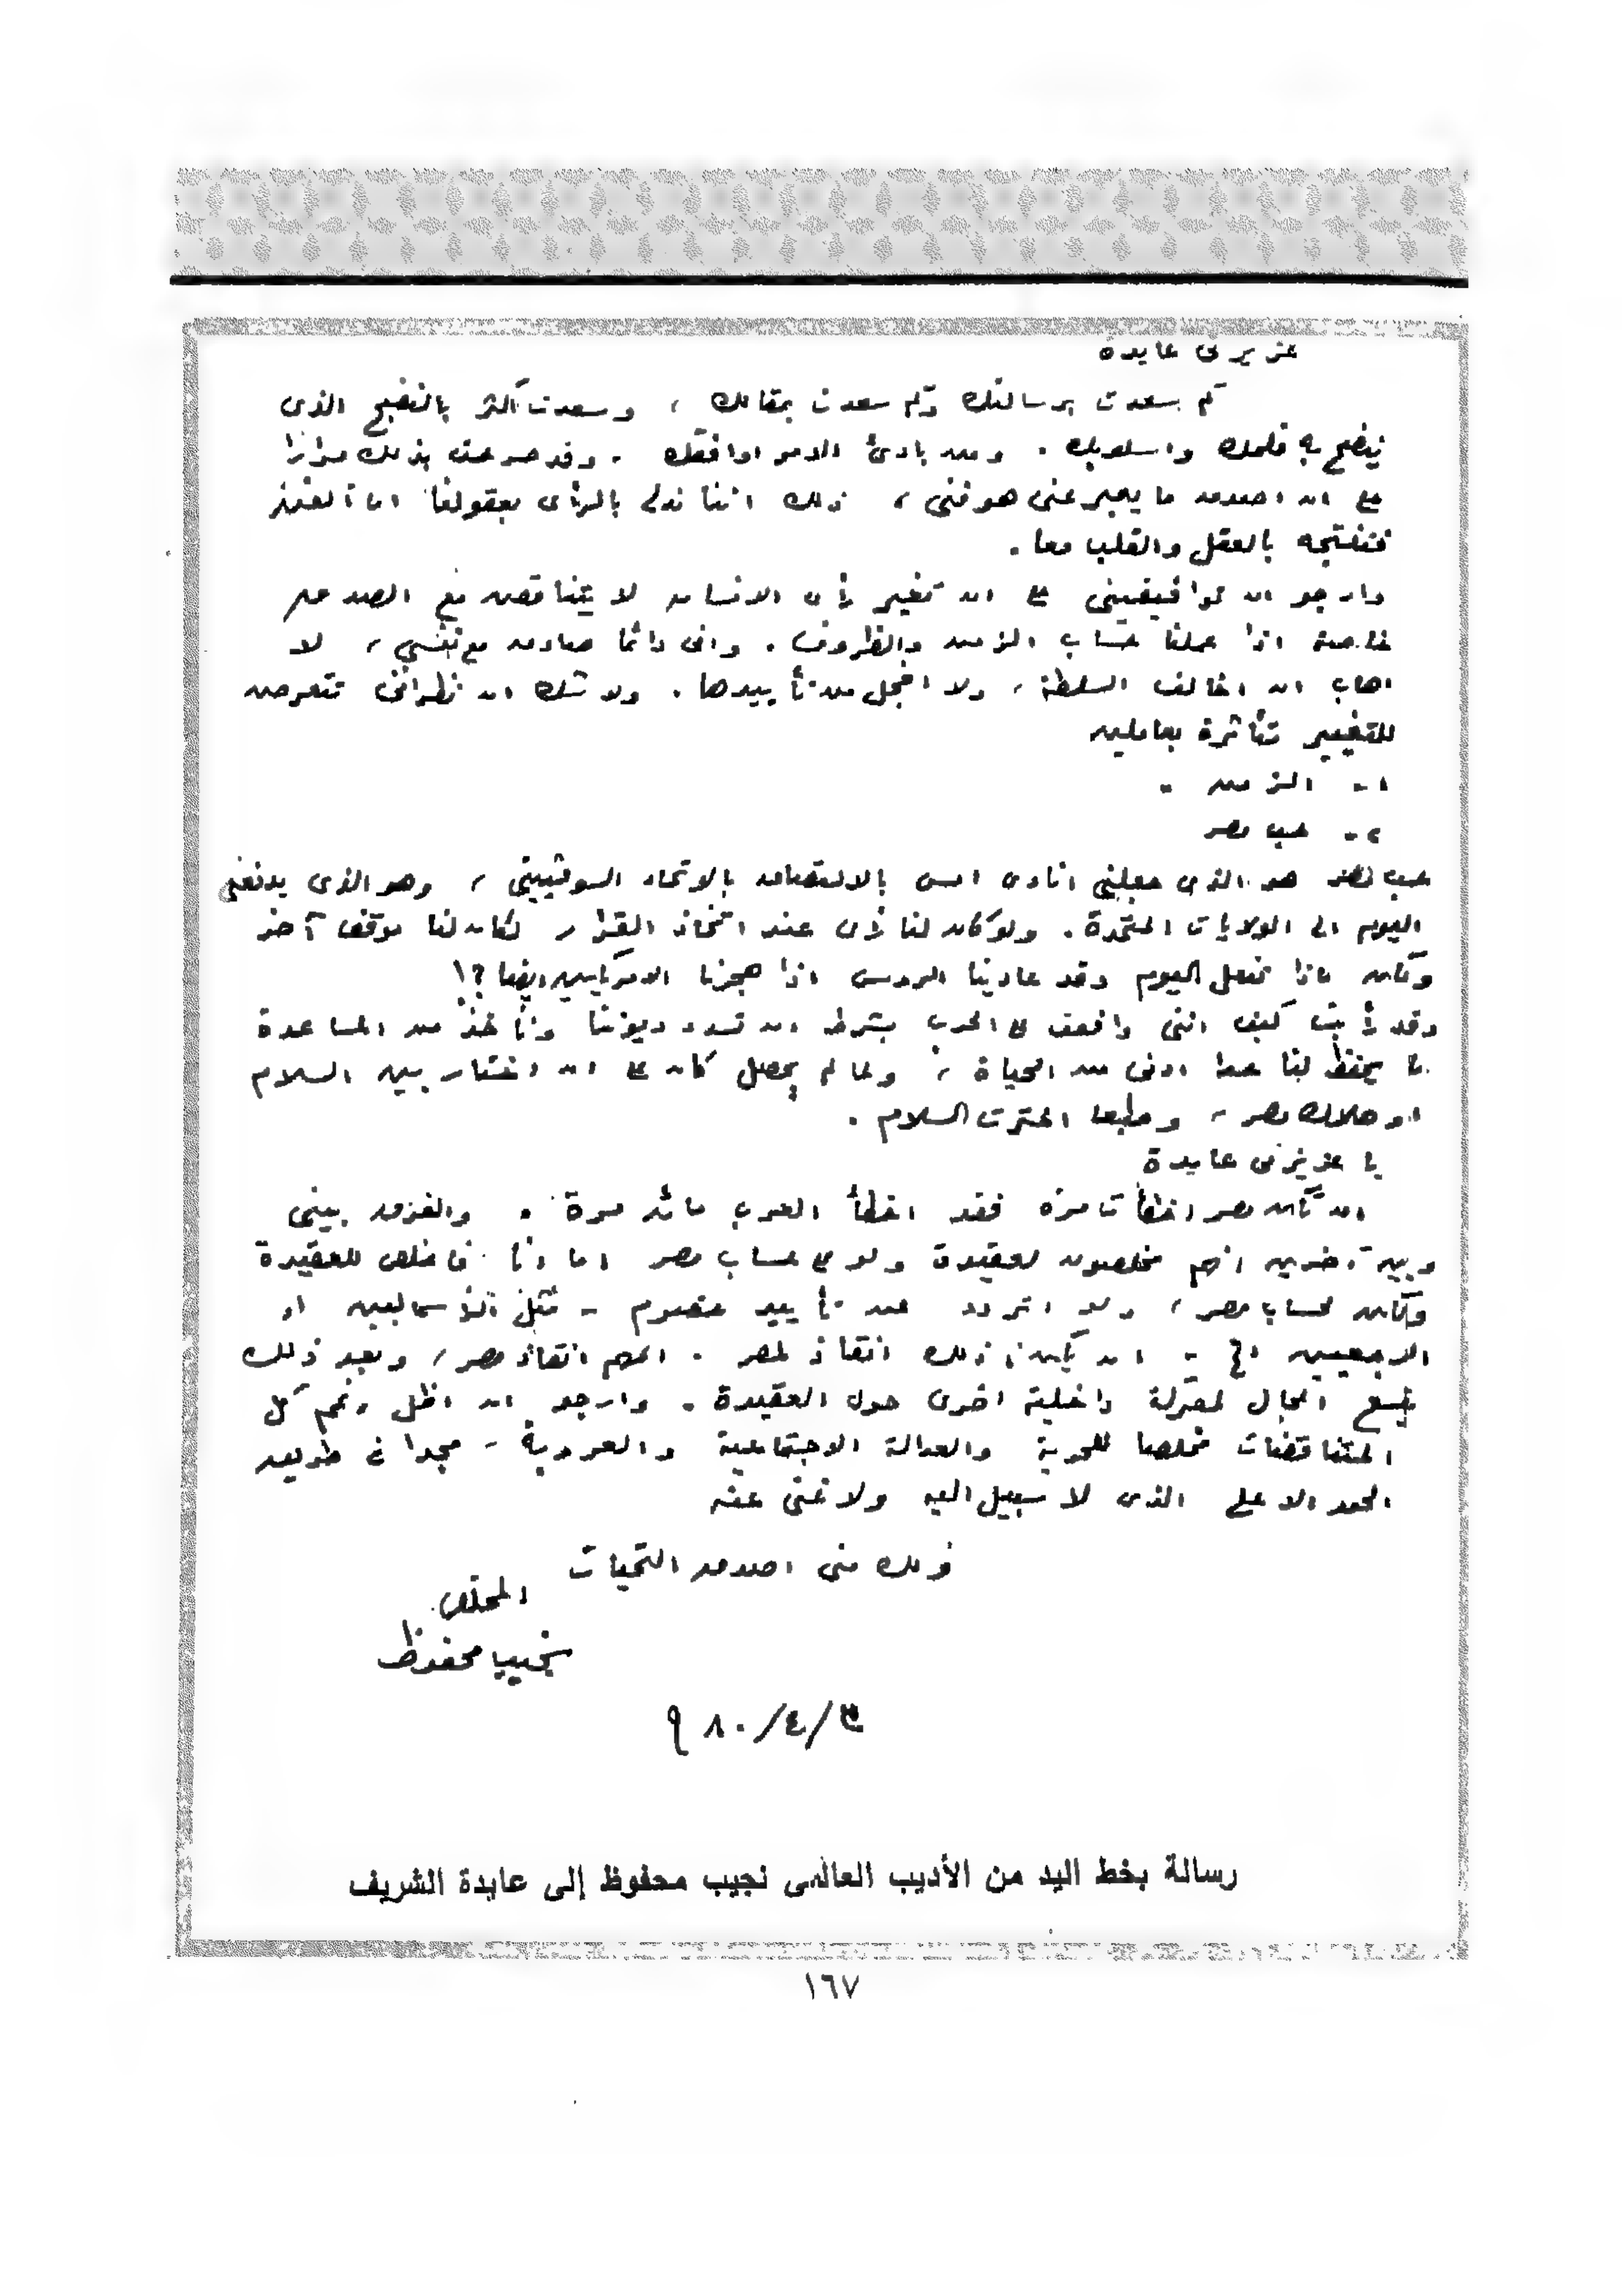 عزيزتى عايدة
كم سعدت برسالتك وكم سعدت بمقالك ، وسعدت اكثر بالنضج الذى
ينضح به قلمك واسلوبك . ومن بادئ الامر اوافقك . وقد صرحت بذلك مرارا
على ان اصدق ما يعبر عنى هو فنى ، ذلك اننا ندلى بالرأى بعقولنا اما الفن
فننتجه بالعقل والقلب معا .
وارجو ان توافقينى على ان تغير رأى الانسان لا يتناقض مع الصدق
خاصة اذا عملنا حساب الزمن والظروف . وانى دائما صادق مع نفسي ، لا
اهاب ان اخالف السلطة ، ولا اخجل من تأييدها . ولا شك ان نظراتى تتعرض
للتغيير متأثرة بعاملين
١- الزمن .
٢- حب مصر
حب مصر هو الذى جعلنى انادى امس بالالتصاق بالاتحاد السوفييتى ، وهو الذى يدفعنى
اليوم الى الولايات المتحدة . ولو كان لنا رأى عند اتخاذ القرار لكان لنا موقف آخر
ولكن ماذا نفعل اليوم وقد عادينا الروس اذا هجرنا الامريكيين ايضا ؟!
وقد رأيت كيف اننى وافقت على الحرب بشرط ان تسدد ديوننا ونأخذ من المساعدة
ما يحفظ لنا حدا ادنى من الحياة ، ولما لم يحصل كان على ان اختار بين السلام
او هلاك مصر ، وطبعا اخترت السلام .
يا عزيزتى عايدة
ان تكن مصر اخطأت مرة فقد اخطأ العرب مائة مرة . والفرق بينى
وبين آخرين انهم مخلصون لعقيدة ولو على حساب مصر اما انا فاخلص للعقيدة
ولكن لحساب مصر ، ولا اتردد عن تأييد خصوم - مثل الرأسماليين او
الرجعيين الخ - ان يكن فى ذلك انقاذ لمصر . المهم انقاذ مصر ، وبعد ذلك
يتسع المجال لمعركة داخلية اخرى حول العقيدة . وارجو ان اظل رغم كل
المتناقضات مخلصا للحرية والعدالة الاجتماعية والعروبة - مجدا فى طريق
الحق الاعلى الذى لا سبيل اليه ولا غنى عنه
ولك منى اصدق التحيات
المخلص
نجيب محفوظ
٣/٤/٩٨٠
رسالة بخط اليد من الأديب العالمى نجيب محفوظ إلى عايدة الشريف
١٦٧